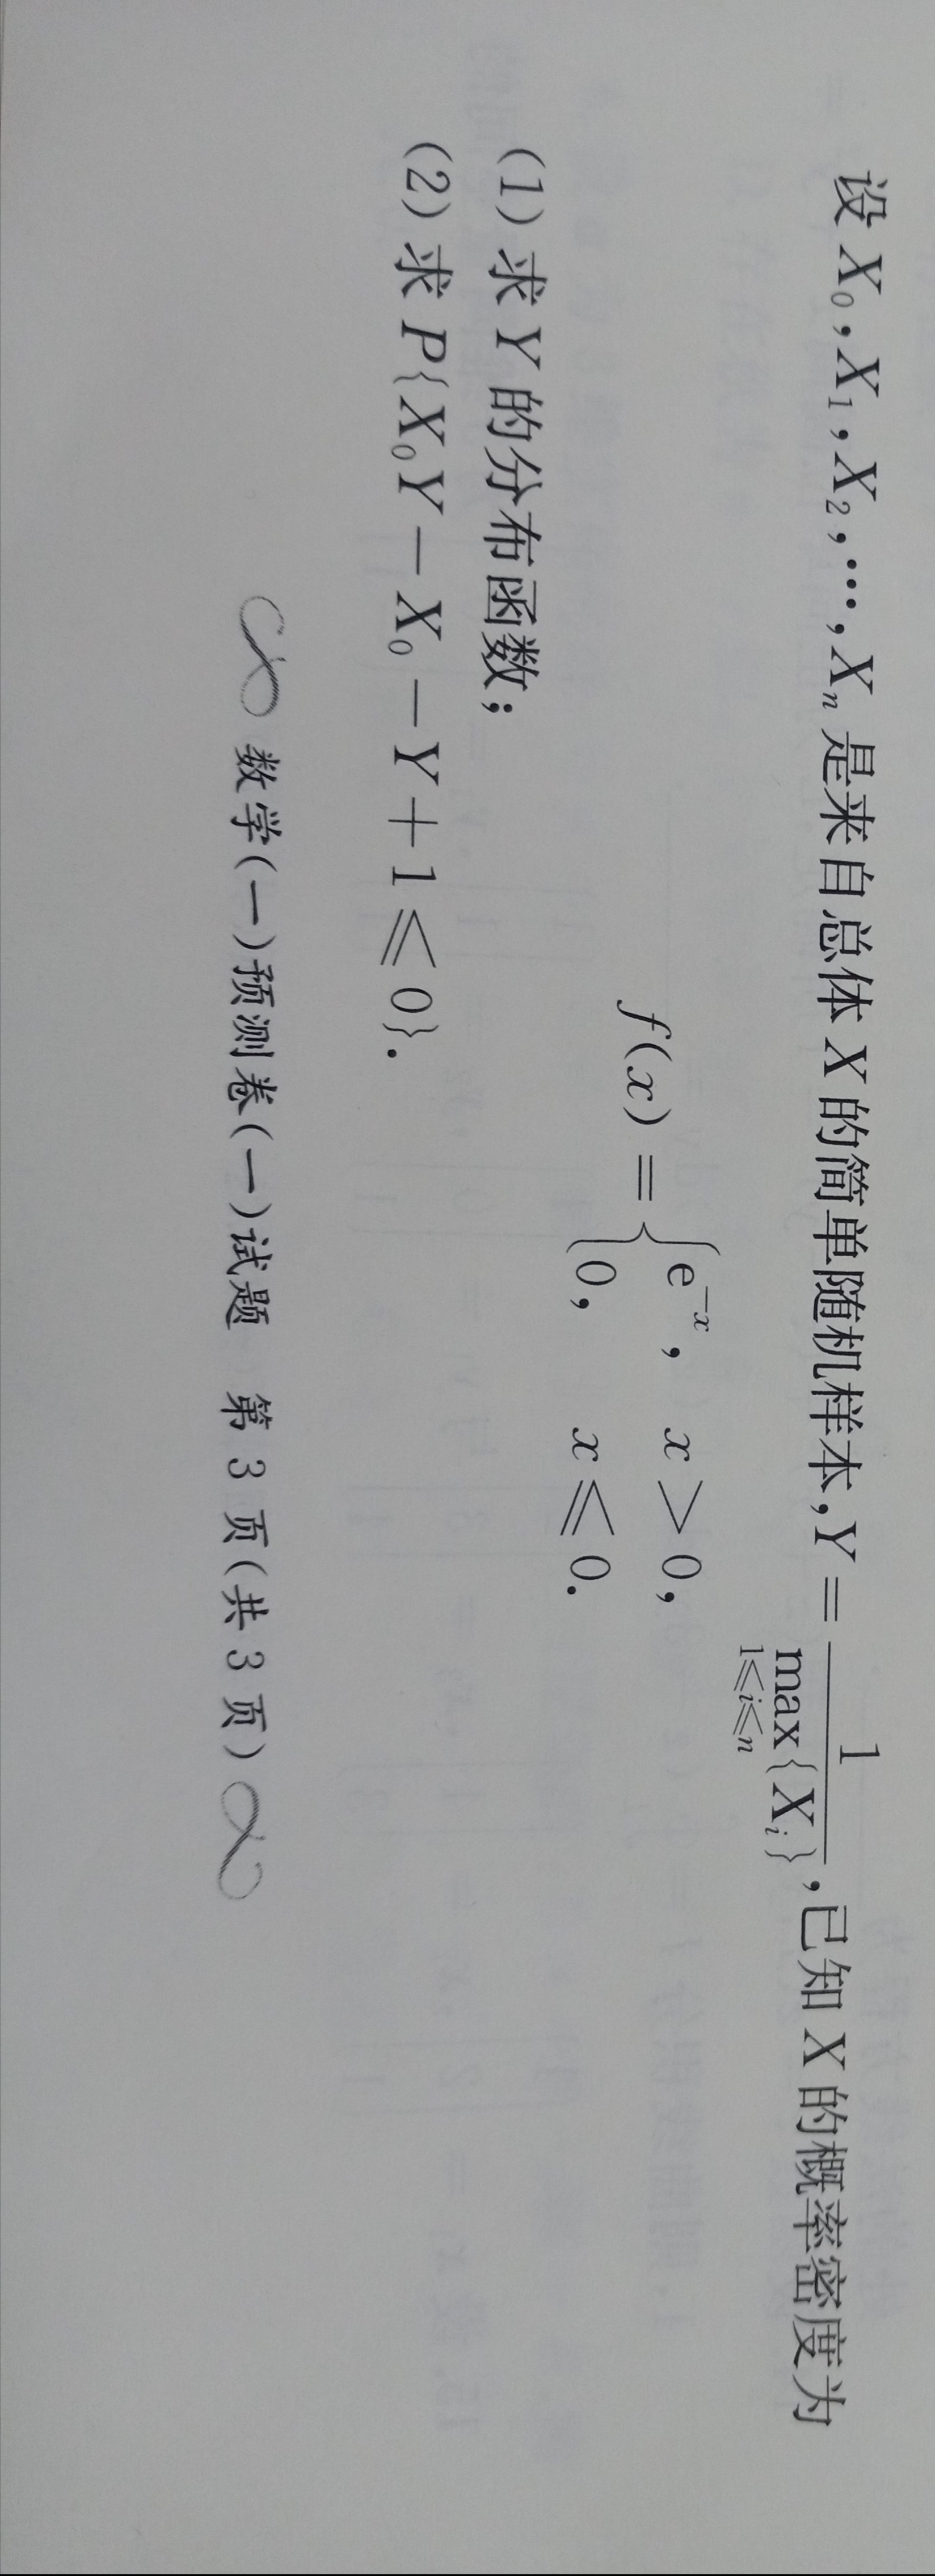 设 X₀,X₁,X₂,…,Xₙ 是来自总体 X 的简单随机样本,Y = 1/max{Xᵢ} (1≤i≤n),已知 X 的概率密度为
f(x) = { e⁻ˣ, x > 0,
0, x ⩽ 0.
(1) 求 Y 的分布函数;
(2) 求 P{X₀Y − X₀ − Y + 1 ⩽ 0}.
数学(一)预测卷(一)试题 第 3 页(共 3 页)